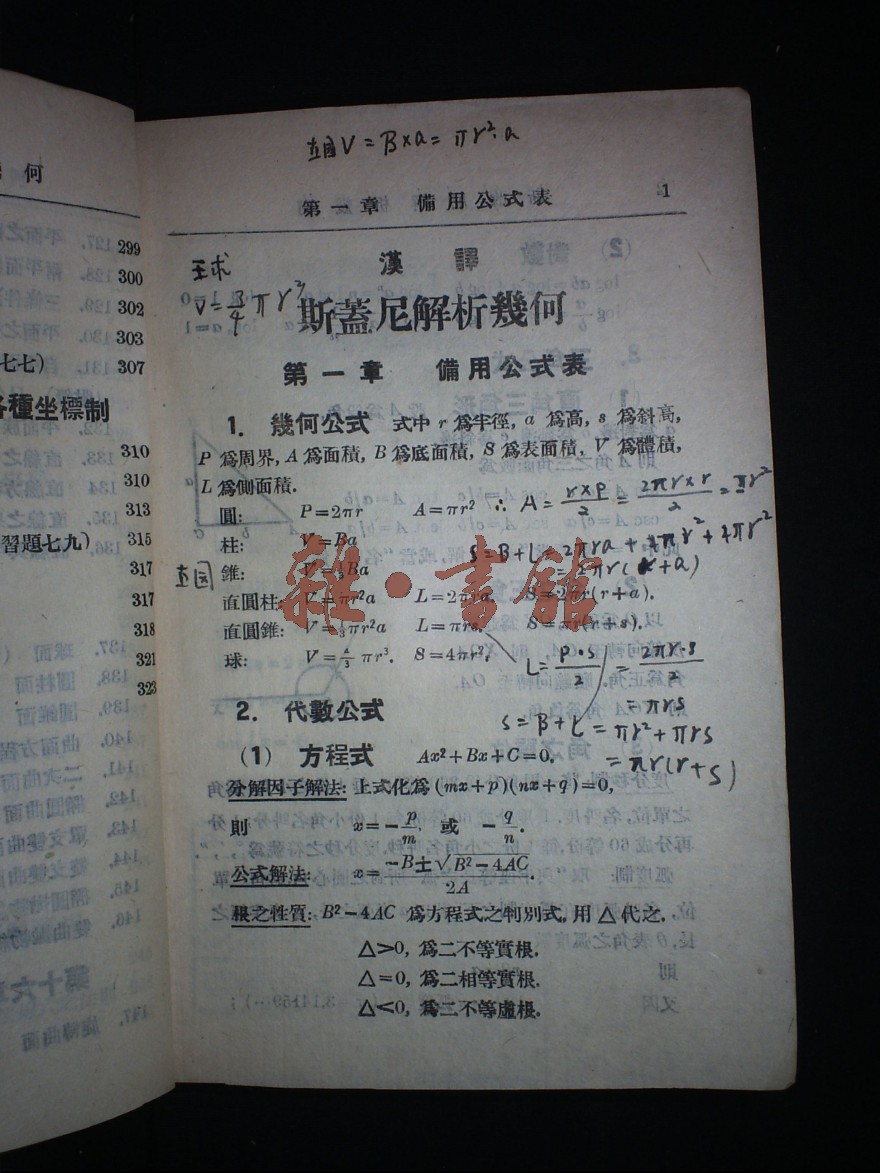 何
299
300
302
303
七七) 307
各種坐標制
310
310
313
習題七九) 315
317
317
318
321
323
直圓 V = B×a = πr²·a
第一章 備用公式表 1
漢譯
球
V = 3/4 πr³
斯蓋尼解析幾何
第一章 備用公式表
1. 幾何公式 式中 r 為半徑, a 為高, s 為斜高,
P 為周界, A 為面積, B 為底面積, S 為表面積, V 為體積,
L 為側面積.
圓: P=2πr A=πr² ∴ A = r×p/2 = 2πr×r/2 = πr²
柱: V=Ba
S=B+L=2πra+
=2πr(r+a)
直圓 錐: V=⅓Ba
直圓柱: V=πr²a L=2πra. S=2πr(r+a).
直圓錐: V=⅓πr²a L=πrs. S=πr(r+s).
球: V=4/3 πr³. S=4πr².
L = p·s/2 = 2πr·s/2
= πrs
S = B+L = πr²+πrs
= πr(r+s)
2. 代數公式
(1) 方程式 Ax²+Bx+C=0.
分解因子解法: 上式化為 (mx+p)(nx+q)=0,
則 x=-p/m 或 -q/n.
公式解法: x=(-B±√B²-4AC)/2A.
根之性質: B²-4AC 為方程式之判別式, 用 △ 代之,
△>0, 為二不等實根.
△=0, 為二相等實根.
△<0, 為二不等虛根.
雜·書館